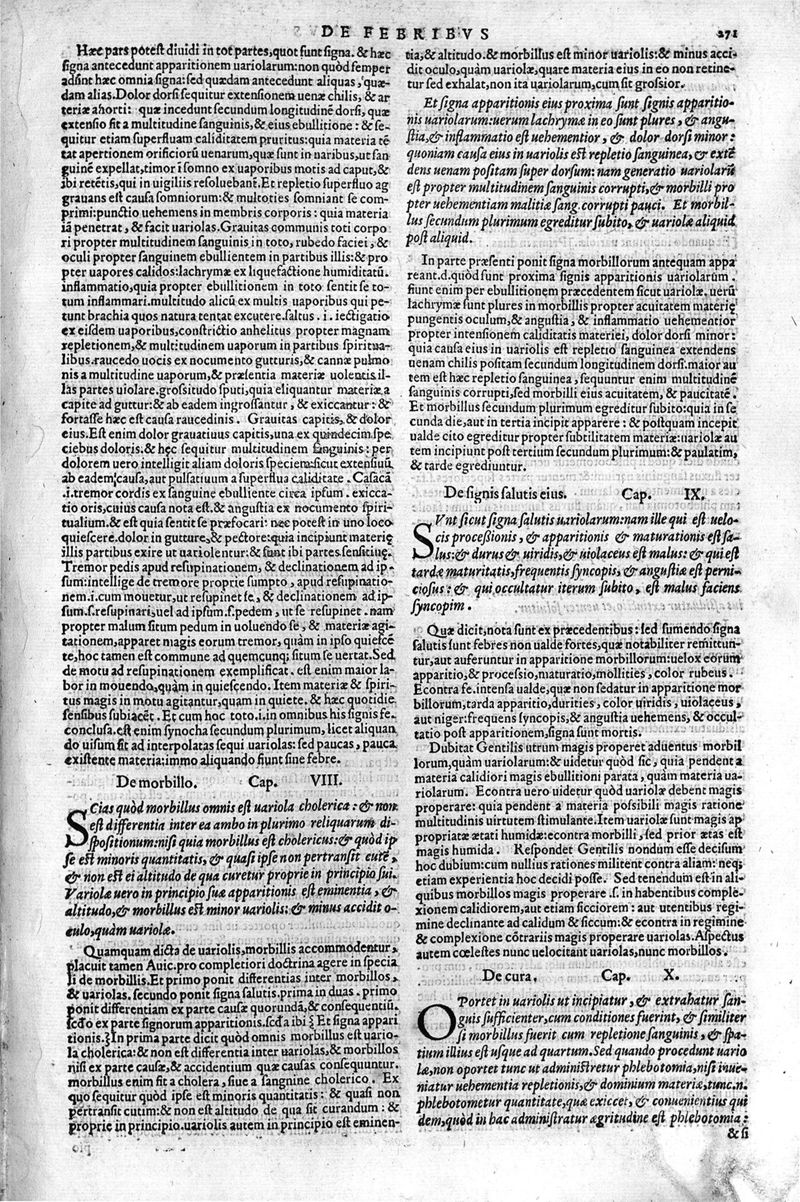 DE FEBRIBVS
271
Hæc pars potest diuidi in tot partes, quot sunt signa. & hæc
signa antecedunt apparitionem uariolarum: non quòd semper
adsint hæc omnia signa: sed quædam antecedunt aliquas, quæ-
dam alias. Dolor dorsi sequitur extensionem uenæ chilis, & ar
teriæ ahorti: quæ incedunt secundum longitudinē dorsi, quæ
extensio fit a multitudine sanguinis, & eius ebullitione: & se-
quitur etiam superfluam caliditatem pruritus: quia materia tē
tat apertionem orificiorū uenarum, quæ sunt in naribus, ut san
guinē expellat, timor i somno ex uaporibus motis ad caput, &
ibi retētis, qui in uigiliis resoluebant. Et repletio superfluo ag
grauans est causa somniorum: & multoties somniant se com-
primi: punctio uehemens in membris corporis: quia materia
iā penetrat, & facit uariolas. Grauitas communis toti corpo
ri propter multitudinem sanguinis in toto, rubedo faciei, &
oculi propter sanguinem ebullientem in partibus illis: & pro
pter uapores calidos: lachrymæ ex liquefactione humiditatū.
inflammatio, quia propter ebullitionem in toto sentit se to-
tum inflammari. multitudo alicū ex multis uaporibus qui pe-
tunt brachia quos natura tentat excutere. saltus .i. iectigatio
ex eisdem uaporibus, constrictio anhelitus propter magnam
repletionem, & multitudinem uaporum in partibus spiritua-
libus. raucedo uocis ex nocumento gutturis, & cannæ pulmo
nis a multitudine uaporum, & præsentia materiæ uolentis il-
las partes uiolare. grossitudo sputi, quia eliquantur materiæ a
capite ad guttur: & ab eadem ingrossantur, & exiccantur: &
fortasse hæc est causa raucedinis. Grauitas capitis, & dolor
eius. Est enim dolor grauatiuus capitis, una ex quindecim spe
ciebus doloris: & hęc sequitur multitudinem sanguinis: per
dolorem uero intelligit aliam doloris speciem: sicut extensiuū
ab eadem causa, aut pulsatiuum a superflua caliditate. Casacā
.i. tremor cordis ex sanguine ebulliente circa ipsum. exicca-
tio oris, cuius causa nota est. & angustia ex nocumento spiri-
tualium. & est quia sentit se præfocari: nec potest in uno loco
quiescere. dolor in gutture, & pectore: quia incipiunt materię
illis partibus exire ut uariolentur: & sunt ibi partes sensitiuę.
Tremor pedis apud resupinationem, & declinationem ad ip-
sum: intellige de tremore proprie sumpto, apud resupinatio-
nem .i. cum mouetur, ut resupinet se, & declinationem ad ip-
sum .s. resupinari, uel ad ipsum .s. pedem, ut se resupinet. nam
propter malum situm pedum in uoluendo se, & materiæ agi-
tationem, apparet magis eorum tremor, quàm in ipso quiescē
te, hoc tamen est commune ad quemcunq; situm se uertat. Sed
de motu ad resupinationem exemplificat. est enim maior la-
bor in mouendo, quàm in quiescendo. Item materiæ & spiri-
tus magis in motu agitantur, quam in quiete. & hæc quotidie
sensibus subiacēt. Et cum hoc toto .i. in omnibus his signis fe.
conclusa. est enim synocha secundum plurimum, licet aliquan
do uisum sit ad interpolatas sequi uariolas: sed paucas, pauca
existente materia: immo aliquando fiunt sine febre.
De morbillo. Cap. VIII.
SCias quòd morbillus omnis est uariola cholerica: & non
est differentia inter ea ambo in plurimo reliquarum di-
spositionum: nisi quia morbillus est cholericus: & quòd ip
se est minoris quantitatis, & quasi ipse non pertransit cutē,
& non est ei altitudo de qua curetur proprie in principio sui.
Variolæ uero in principio suæ apparitionis est eminentia, &
altitudo, & morbillus est minor uariolis: & minus accidit o-
culo, quàm uariolæ.
Quamquam dicta de uariolis, morbillis accommodentur,
placuit tamen Auic. pro completiori doctrina agere in specia
li de morbillis. Et primo ponit differentias inter morbillos,
& uariolas. secundo ponit signa salutis. prima in duas. primo
ponit differentiam ex parte causæ quorundā, & consequentiū.
scd̄o ex parte signorum apparitionis. scd̄a ibi Et signa appari
tionis. In prima parte dicit quòd omnis morbillus est uario-
la cholerica: & non est differentia inter uariolas, & morbillos
nisi ex parte causæ, & accidentium quæ causas consequuntur.
morbillus enim fit a cholera, siue a sanguine cholerico. Ex
quo sequitur quòd ipse est minoris quantitatis: & quasi non
pertransit cutim: & non est altitudo de qua sit curandum: &
proprie in principio. uariolis autem in principio est eminen-
tia, & altitudo. & morbillus est minor uariolis: & minus acci
dit oculo, quàm uariolæ, quare materia eius in eo non retine-
tur sed exhalat, non ita uariolarum, cum sit grossior.
Et signa apparitionis eius proxima sunt signis apparitio-
nis uariolarum: uerum lachrymæ in eo sunt plures, & angu-
stia, & inflammatio est uehementior, & dolor dorsi minor:
quoniam causa eius in uariolis est repletio sanguinea, & extē
dens uenam positam super dorsum: nam generatio uariolarū
est propter multitudinem sanguinis corrupti, & morbilli pro
pter uehementiam malitiæ sang. corrupti pauci. Et morbil-
lus secundum plurimum egreditur subito, & uariolæ aliquid
post aliquid.
In parte præsenti ponit signa morbillorum antequam appa
reant. d. quòd sunt proxima signis apparitionis uariolarum.
fiunt enim per ebullitionem præcedentem sicut uariolæ, uerū
lachrymæ sunt plures in morbillis propter acuitatem materię
pungentis oculum, & angustia, & inflammatio uehementior
propter intensionem caliditatis materiei, dolor dorsi minor:
quia causa eius in uariolis est repletio sanguinea extendens
uenam chilis positam secundum longitudinem dorsi. maior au
tem est hæc repletio sanguinea, sequuntur enim multitudinē
sanguinis corrupti, sed morbilli eius acuitatem, & paucitatē.
Et morbillus secundum plurimum egreditur subito: quia in se
cunda die, aut in tertia incipit apparere: & postquam incepit
ualde cito egreditur propter subtilitatem materiæ: uariolæ au
tem incipiunt post tertium secundum plurimum: & paulatim,
& tarde egrediuntur.
De signis salutis eius. Cap. IX.
SVnt sicut signa salutis uariolarum: nam ille qui est uelo-
cis processionis, & apparitionis & maturationis est sa-
lus: & durus & uiridis, & uiolaceus est malus: & qui est
tardæ maturitatis, frequentis syncopis, & angustiæ est perni-
ciosus: & qui occultatur iterum subito, est malus faciens
syncopim.
Quæ dicit, nota sunt ex præcedentibus: sed sumendo signa
salutis sunt febres non ualde fortes, quæ notabiliter remittun-
tur, aut auferuntur in apparitione morbillorum: uelox eorum
apparitio, & processio, maturatio, mollities, color rubeus.
Econtra fe. intensa ualde, quæ non sedatur in apparitione mor
billorum, tarda apparitio, durities, color uiridis, uiolaceus,
aut niger: frequens syncopis, & angustia uehemens, & occul-
tatio post apparitionem, signa sunt mortis.
Dubitat Gentilis utrum magis properet aduentus morbil
lorum, quàm uariolarum: & uidetur quòd sic, quia pendent a
materia calidiori magis ebullitioni parata, quàm materia ua-
riolarum. Econtra uero uidetur quòd uariolæ debent magis
properare: quia pendent a materia possibili magis ratione
multitudinis uirtutem stimulante. Item uariolæ sunt magis ap
propriatæ ætati humidæ: econtra morbilli, sed prior ætas est
magis humida. Respondet Gentilis nondum esse decisum
hoc dubium: cum nullius rationes militent contra aliam: neq;
etiam experientia hoc decidi posse. Sed tenendum est in ali-
quibus morbillos magis properare .s. in habentibus comple-
xionem calidiorem, aut etiam sicciorem: aut utentibus regi-
mine declinante ad calidum & siccum: & econtra in regimine
& complexione cōtrariis magis properare uariolas. Aspectus
autem cœlestes nunc uelocitant uariolas, nunc morbillos.
De cura. Cap. X.
OPortet in uariolis ut incipiatur, & extrahatur san-
guis sufficienter, cum conditiones fuerint, & similiter
si morbillus fuerit cum repletione sanguinis, & spa-
tium illius est usque ad quartum. Sed quando procedunt uario
læ, non oportet tunc ut administretur phlebotomia, nisi inue-
niatur uehementia repletionis, & dominium materiæ, tunc. n.
phlebotometur quantitate, quæ exiccet, & conuenientius qui
dem, quòd in hac administratur ægritudine est phlebotomia:
& si